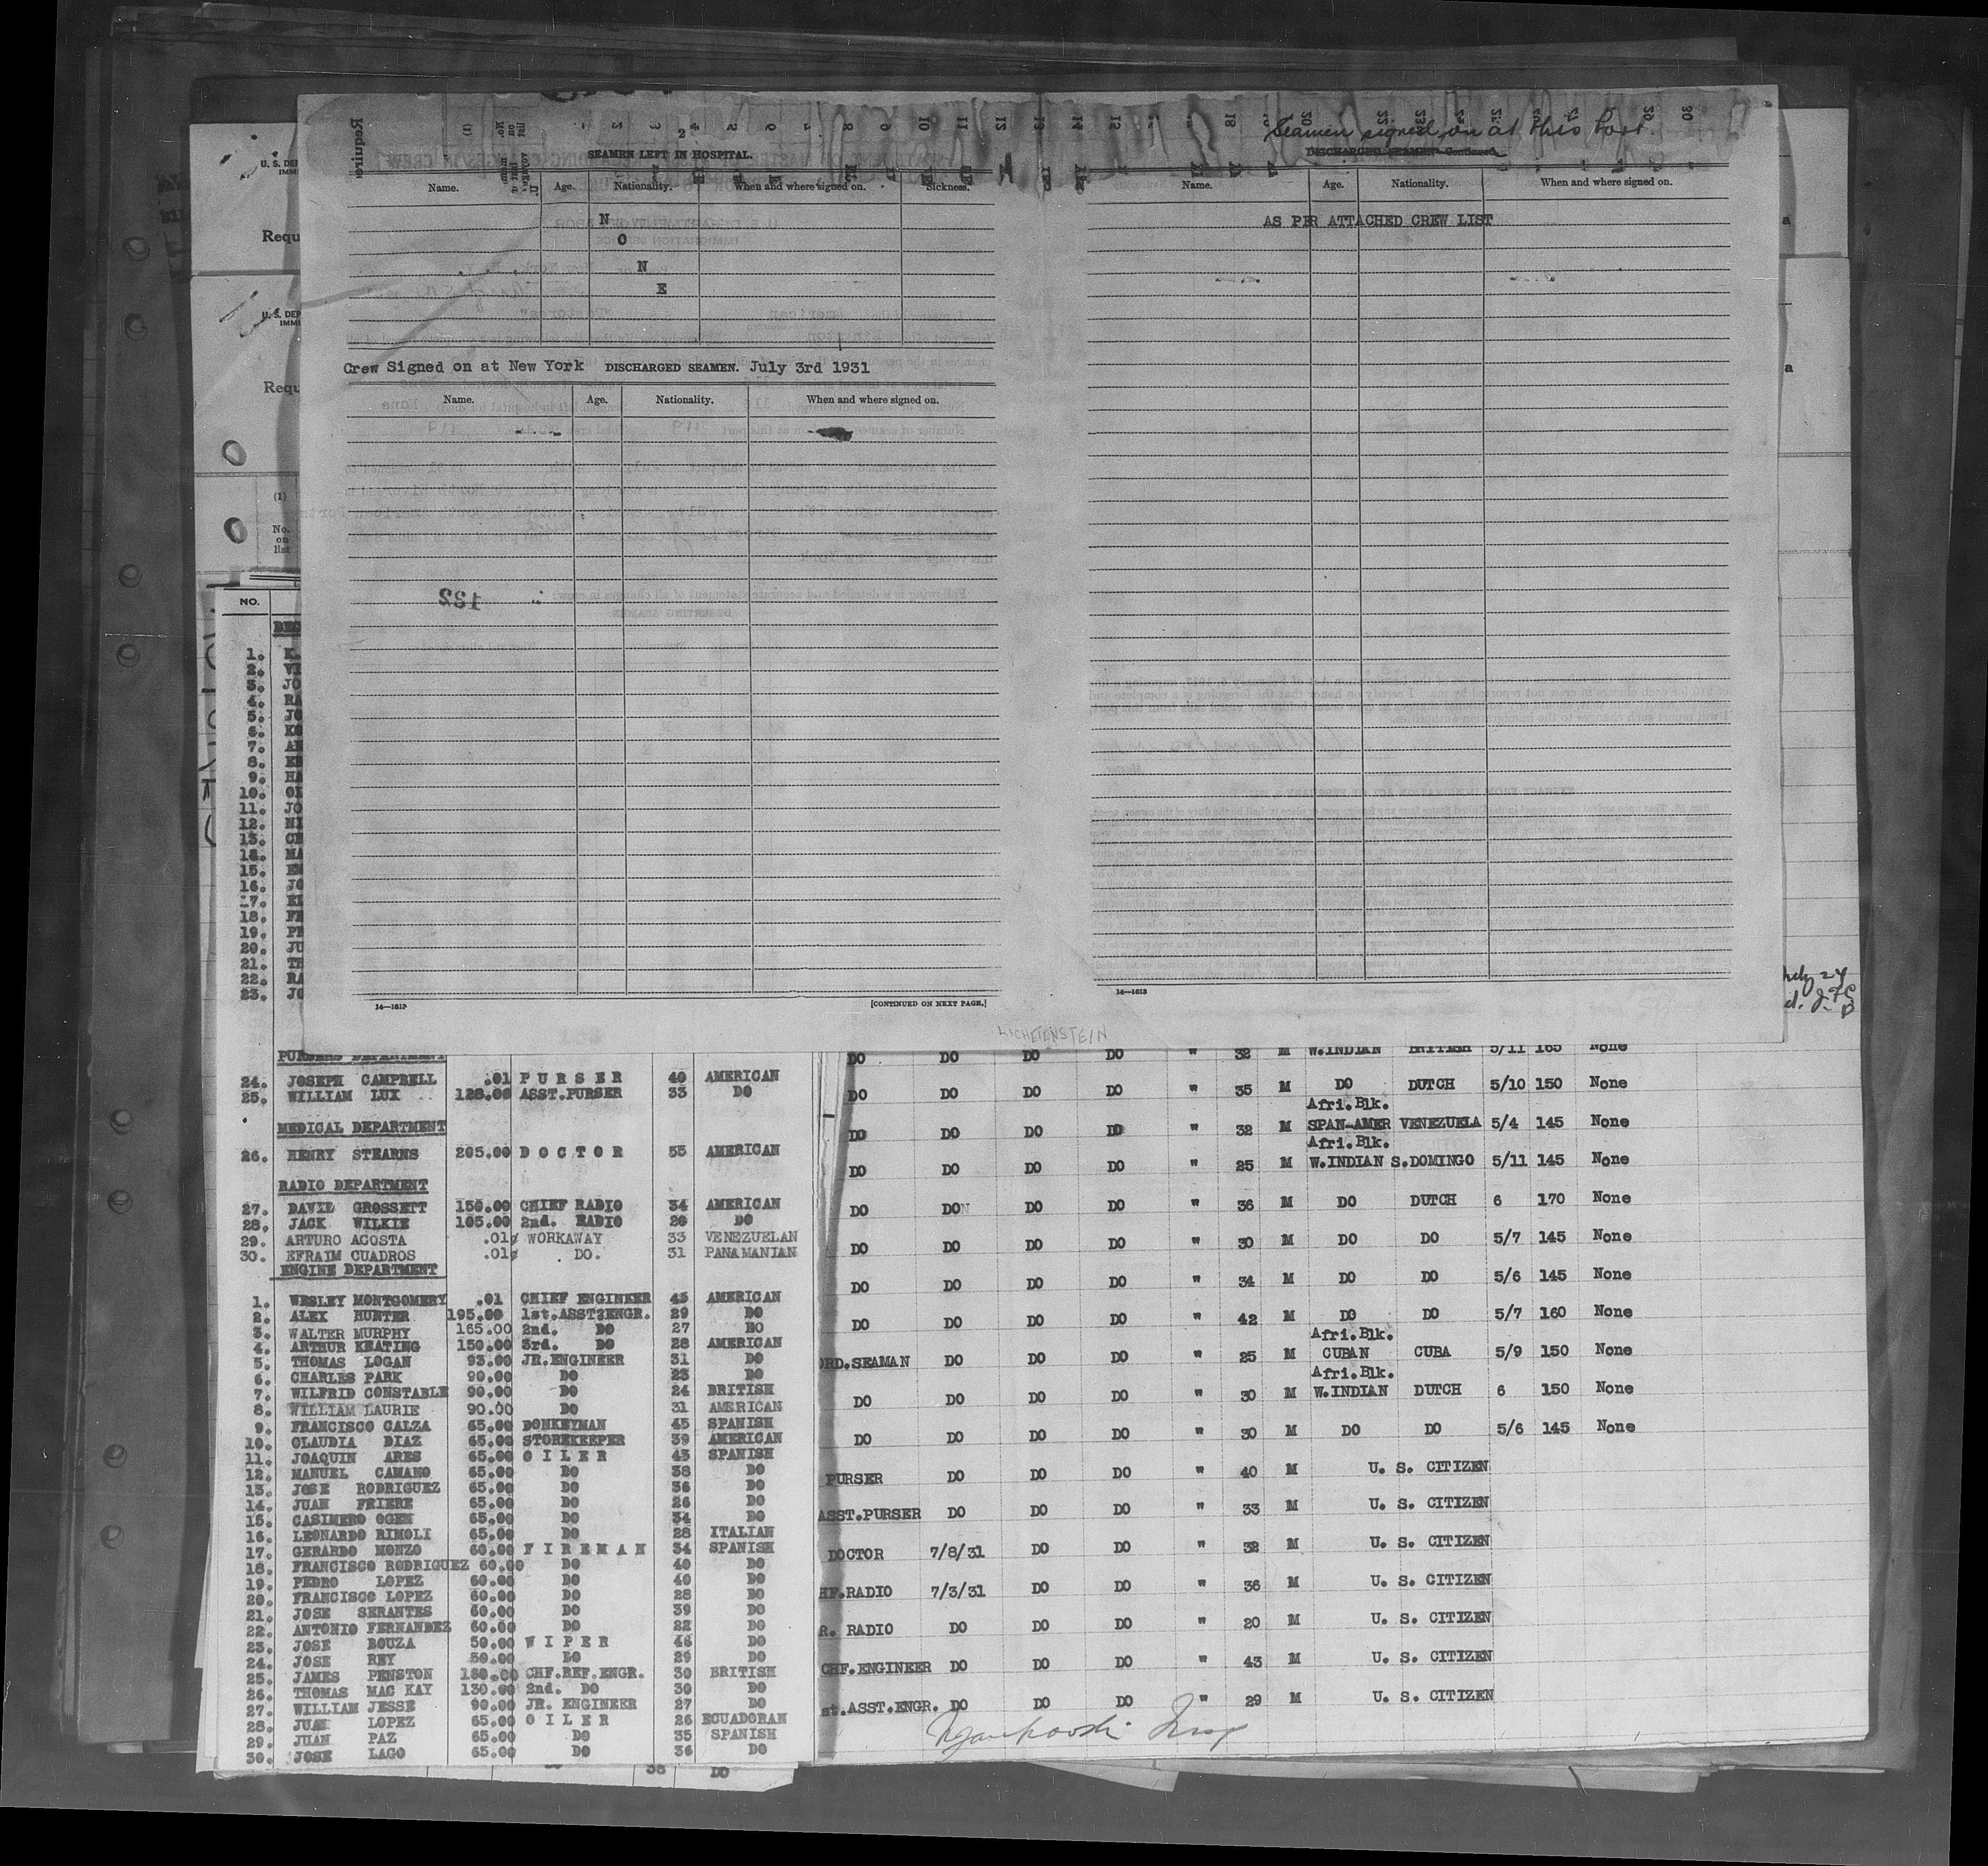 Seamen signed on at this Port.
2
SEAMEN LEFT IN HOSPITAL.
DISCHARGED SEAMEN—Continued.
Name. Age. Nationality. When and where signed on. Sickness.
Name. Age. Nationality. When and where signed on.
N
O
N
E
AS PER ATTACHED CREW LIST
Crew Signed on at New York DISCHARGED SEAMEN. July 3rd 1931
Name. Age. Nationality. When and where signed on.
14—1613 [CONTINUED ON NEXT PAGE.]
14—1613
LICHTENSTEIN
U. S. DEP
Requ
U. S. DEP
IMMI
Requ
(1)
No. on list
NO.
1. K.
2. VI
3. JO
4. RA
5. JO
6. KO
7. AN
8. ER
9. HA
10. OL
11. JO
12. NI
13. CH
14. MA
15. EM
16. JO
17. EL
18. FR
19. PE
20. JU
21. TH
22. RA
23. JO
PURSERS DEPARTMENT
24. JOSEPH CAMPBELL .01 PURSER 40 AMERICAN
25. WILLIAM LUX 128.00 ASST.PURSER 33 DO
MEDICAL DEPARTMENT
26. HENRY STEARNS 205.00 DOCTOR 55 AMERICAN
RADIO DEPARTMENT
27. DAVID GROSSETT 150.00 CHIEF RADIO 34 AMERICAN
28. JACK WILKIE 105.00 2nd. RADIO 20 DO
29. ARTURO ACOSTA .01¢ WORKAWAY 33 VENEZUELAN
30. EFRAIM CUADROS .01¢ DO. 31 PANAMANIAN
ENGINE DEPARTMENT
1. WESLEY MONTGOMERY .01 CHIEF ENGINEER 43 AMERICAN
2. ALEX HUNTER 195.00 1st.ASST.ENGR. 29 DO
3. WALTER MURPHY 165.00 2nd. DO 27 DO
4. ARTHUR KEATING 150.00 3rd. DO 28 AMERICAN
5. THOMAS LOGAN 93.00 JR.ENGINEER 31 DO
6. CHARLES PARK 90.00 DO 23 DO
7. WILFRID CONSTABLE 90.00 DO 24 BRITISH
8. WILLIAM LAURIE 90.00 DO 31 AMERICAN
9. FRANCISCO CALZA 65.00 DONKEYMAN 45 SPANISH
10. CLAUDIA DIAZ 65.00 STOREKEEPER 39 AMERICAN
11. JOAQUIN ARES 65.00 OILER 43 SPANISH
12. MANUEL CAMANO 65.00 DO 38 DO
13. JOSE RODRIGUEZ 65.00 DO 36 DO
14. JUAN FRIERE 65.00 DO 26 DO
15. CASIMERO OGEN 65.00 DO 34 DO
16. LEONARDO RIMOLI 65.00 DO 28 ITALIAN
17. GERARDO MONZO 60.00 FIREMAN 34 SPANISH
18. FRANCISCO RODRIGUEZ 60.00 DO 40 DO
19. PEDRO LOPEZ 60.00 DO 40 DO
20. FRANCISCO LOPEZ 60.00 DO 28 DO
21. JOSE SERANTES 60.00 DO 39 DO
22. ANTONIO FERNANDEZ 60.00 DO 22 DO
23. JOSE BOUZA 50.00 WIPER 46 DO
24. JOSE REY 50.00 DO 29 DO
25. JAMES PENSTON 180.00 CHF.REF.ENGR. 30 BRITISH
26. THOMAS MAC KAY 130.00 2nd. DO 30 DO
27. WILLIAM JESSE 90.00 JR. ENGINEER 27 DO
28. JUAN LOPEZ 65.00 OILER 26 ECUADORAN
29. JUAN PAZ 65.00 DO 35 SPANISH
30. JOSE LAGO 65.00 DO 36 DO
38 DO
DO DO DO DO " 32 M W.INDIAN BRITISH 5/11 165 None
DO DO DO DO " 35 M DO DUTCH 5/10 150 None
Afri.Blk.
DO DO DO DO " 32 M SPAN-AMER VENEZUELA 5/4 145 None
Afri.Blk.
DO DO DO DO " 25 M W.INDIAN S.DOMINGO 5/11 145 None
DO DO DO DO " 36 M DO DUTCH 6 170 None
DO DO DO DO " 30 M DO DO 5/7 145 None
DO DO DO DO " 34 M DO DO 5/6 145 None
DO DO DO DO " 42 M DO DO 5/7 160 None
Afri.Blk.
ORD.SEAMAN DO DO DO " 25 M CUBAN CUBA 5/9 150 None
Afri.Blk.
DO DO DO DO " 30 M W.INDIAN DUTCH 6 150 None
DO DO DO DO " 30 M DO DO 5/6 145 None
PURSER DO DO DO " 40 M U. S. CITIZEN
ASST.PURSER DO DO DO " 33 M U. S. CITIZEN
DOCTOR 7/8/31 DO DO " 32 M U. S. CITIZEN
HF.RADIO 7/3/31 DO DO " 36 M U. S. CITIZEN
R. RADIO DO DO DO " 20 M U. S. CITIZEN
CHF.ENGINEER DO DO DO " 43 M U. S. CITIZEN
st.ASST.ENGR. DO DO DO " 29 M U. S. CITIZEN